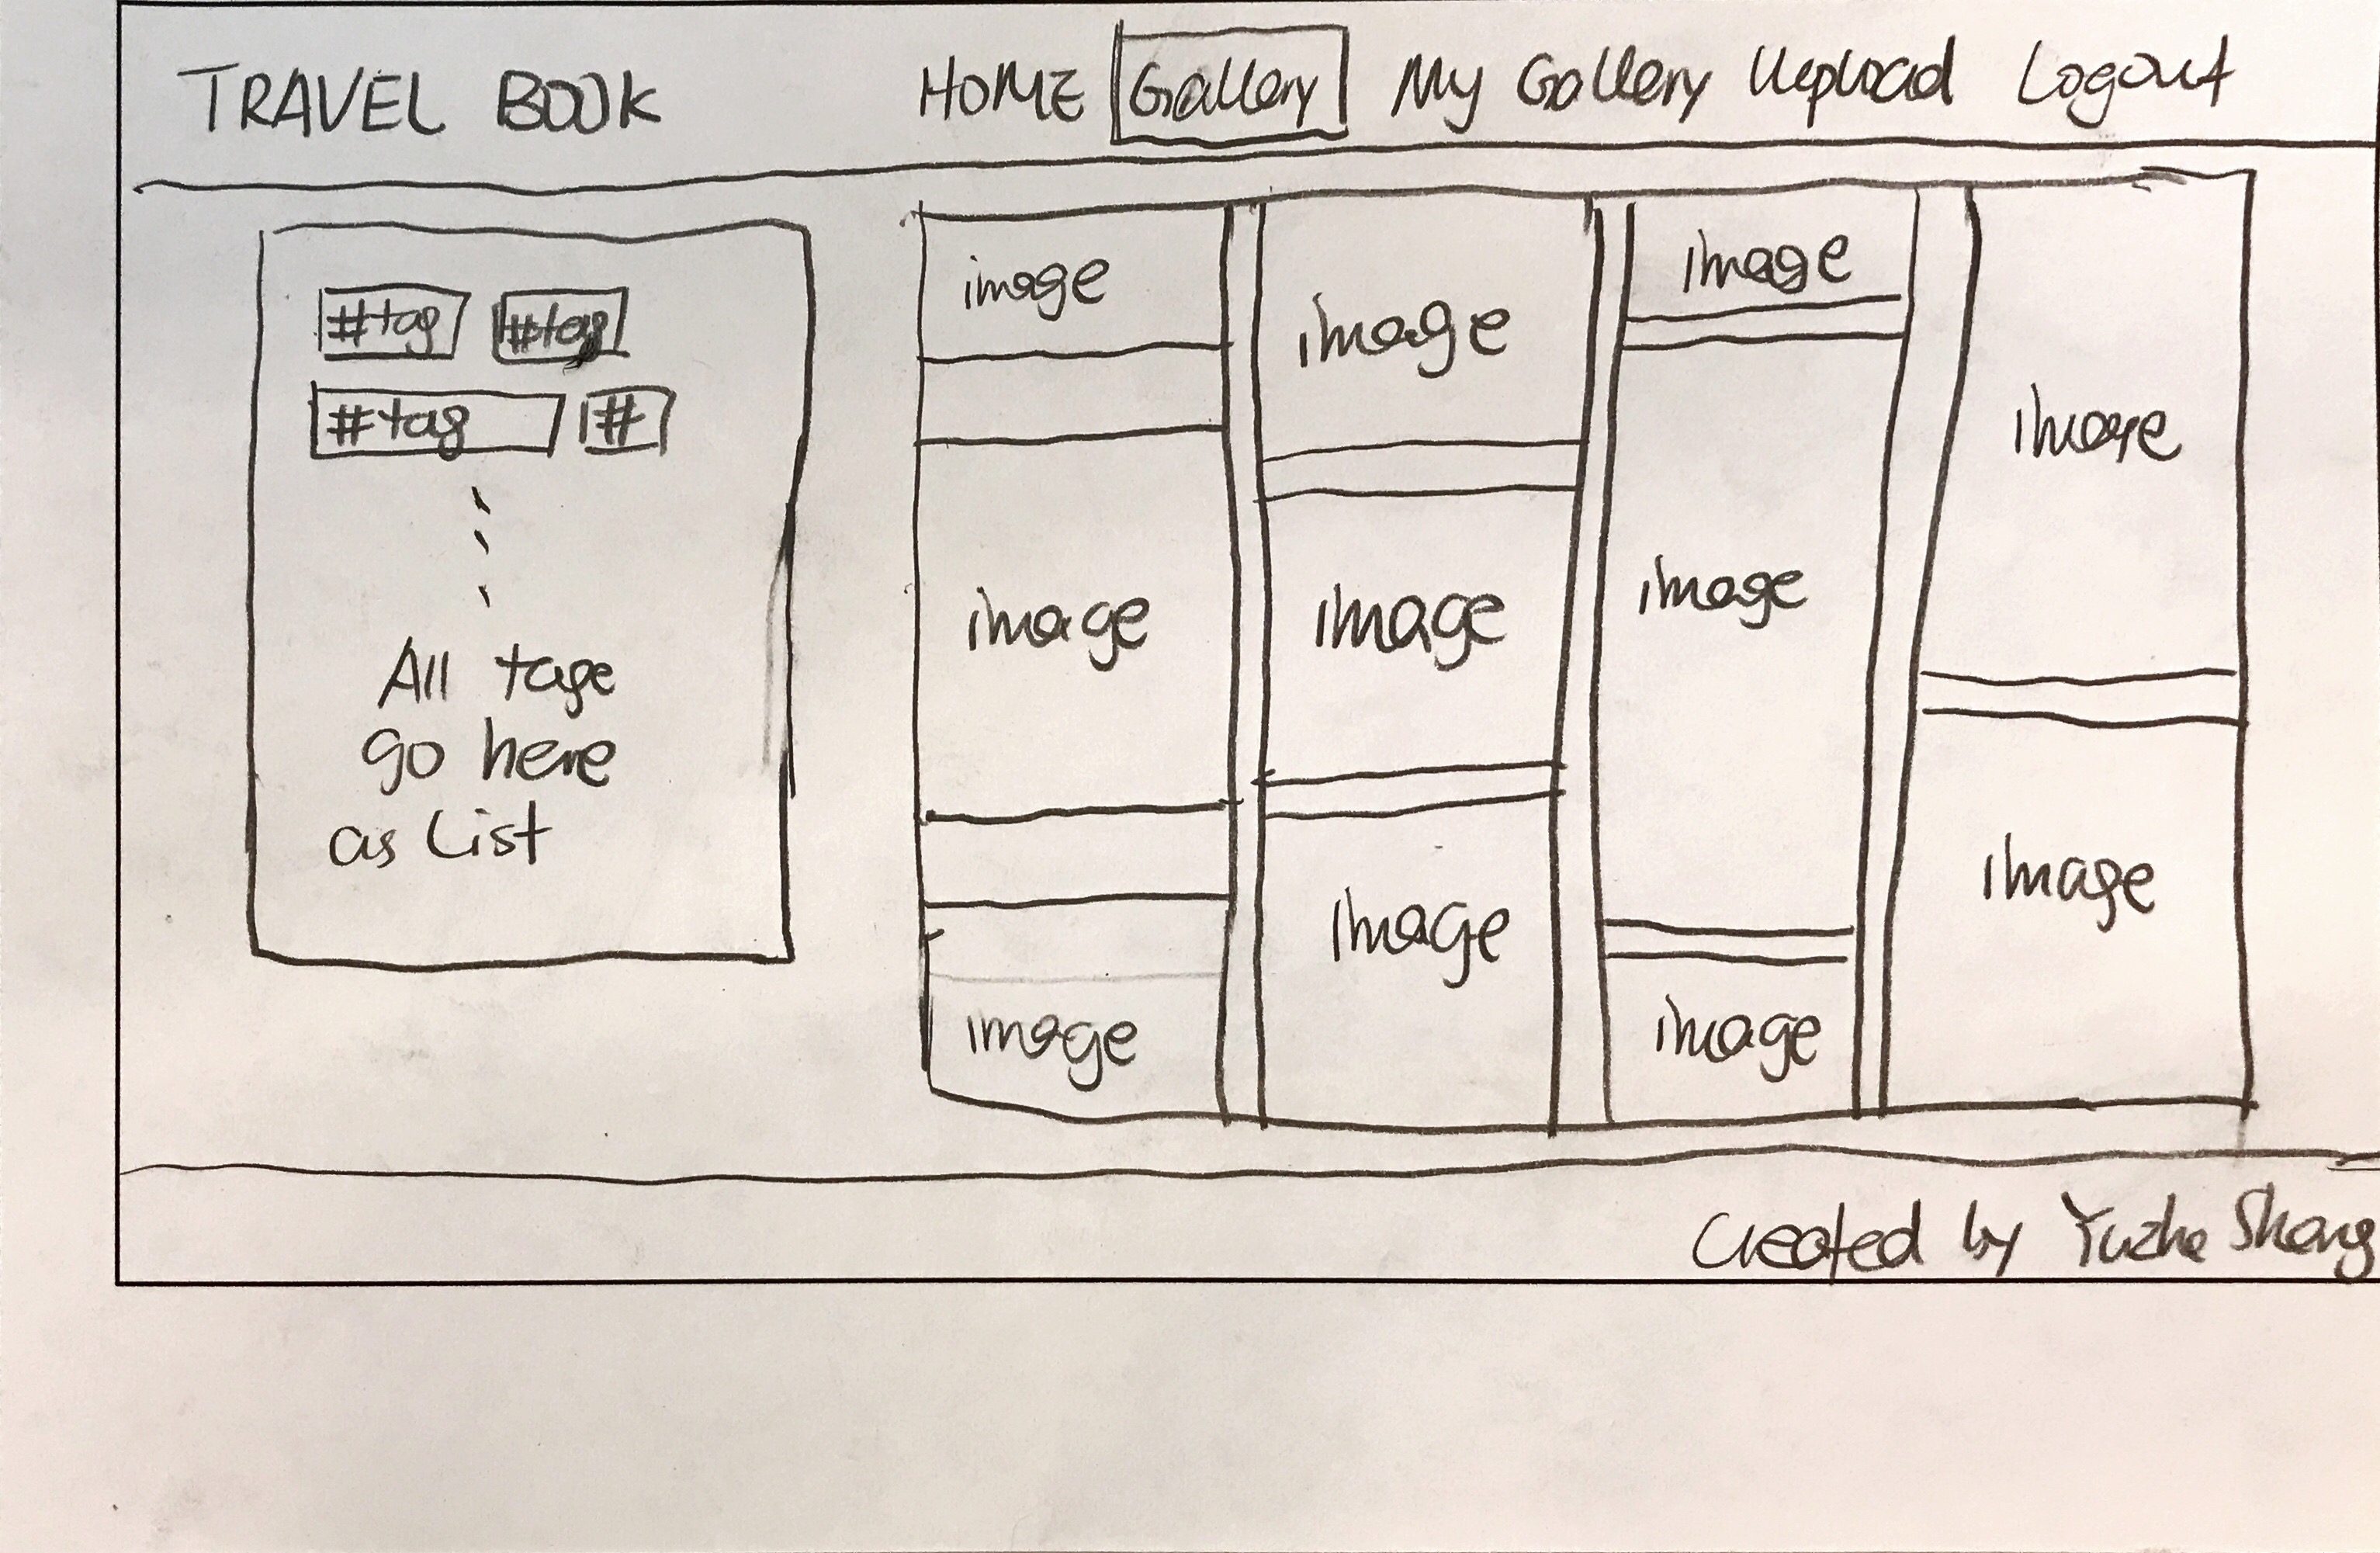 TRAVEL BOOK HOME Gallery My Gallery Upload Logout
#tag #tag
#tag #
All tags
go here
as List
image
image
image
image
image
image
image
image
image
image
image
Created by Yuzhe Sheng